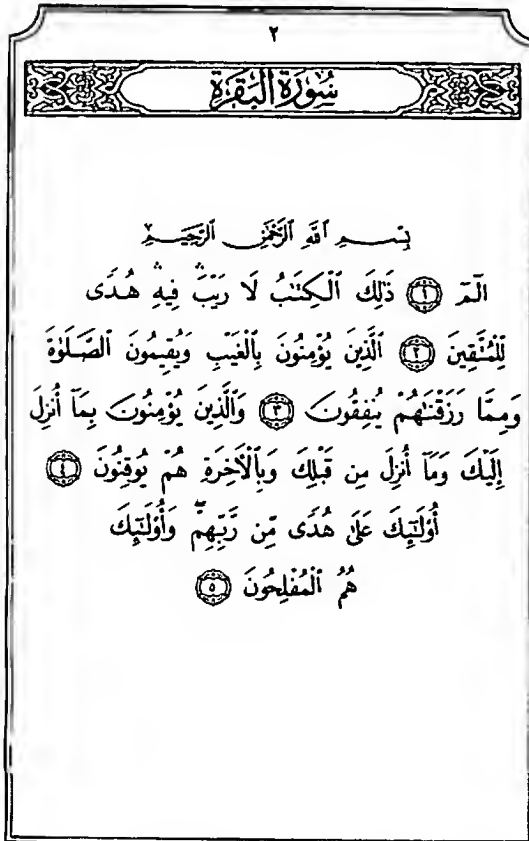 ٢
سُورَةُ الْبَقَرَةِ
بِسْمِ ٱللَّهِ ٱلرَّحْمَٰنِ ٱلرَّحِيمِ
الٓمٓ ١ ذَٰلِكَ ٱلْكِتَٰبُ لَا رَيْبَ ۛ فِيهِ ۛ هُدًى
لِّلْمُتَّقِينَ ٢ ٱلَّذِينَ يُؤْمِنُونَ بِٱلْغَيْبِ وَيُقِيمُونَ ٱلصَّلَوٰةَ
وَمِمَّا رَزَقْنَٰهُمْ يُنفِقُونَ ٣ وَٱلَّذِينَ يُؤْمِنُونَ بِمَآ أُنزِلَ
إِلَيْكَ وَمَآ أُنزِلَ مِن قَبْلِكَ وَبِٱلْأَخِرَةِ هُمْ يُوقِنُونَ ٤
أُو۟لَٰٓئِكَ عَلَىٰ هُدًى مِّن رَّبِّهِمْ ۖ وَأُو۟لَٰٓئِكَ
هُمُ ٱلْمُفْلِحُونَ ٥